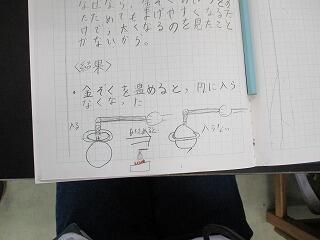 ためてもまげやすくなるだ
けで、太くなるのを見たこと
がないから。
<結果>
・金ぞくを温めると、円に入ら
なくなった
入る
あたためると
入らない